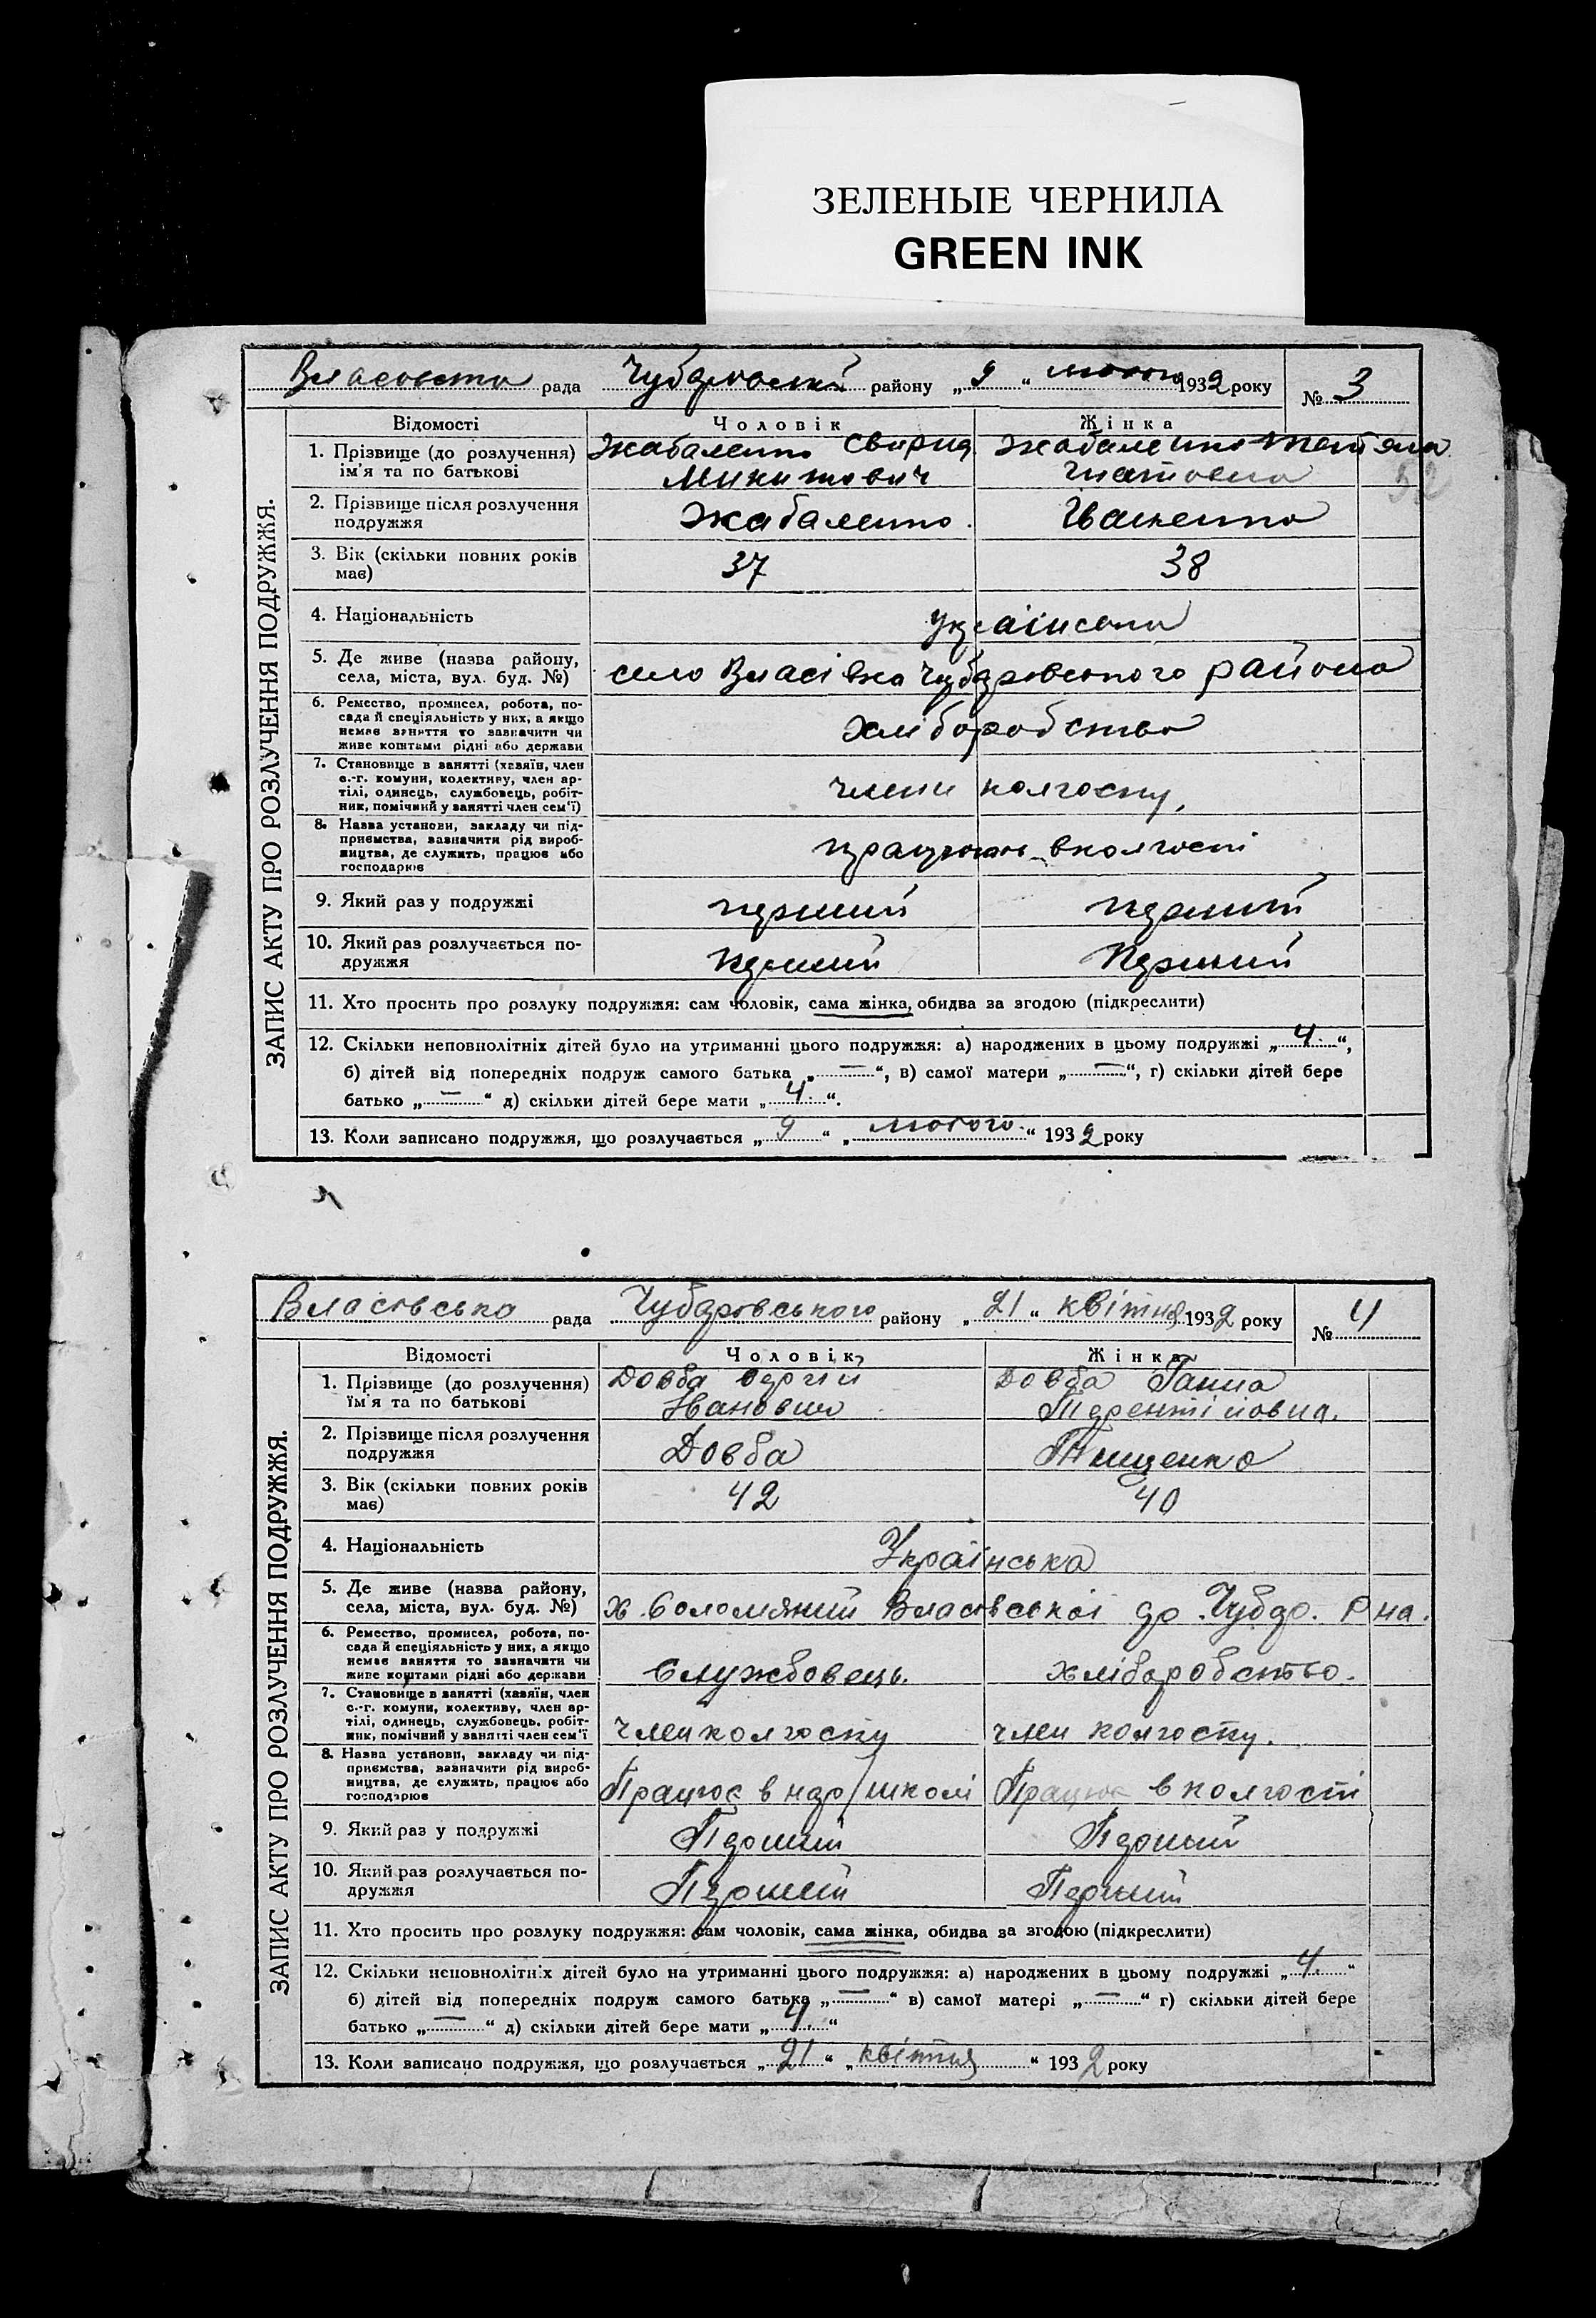 ЗЕЛЕНЫЕ ЧЕРНИЛА
GREEN INK
рада Чубарський району „9“ лютого 1932 року № 3
ЗАПИС АКТУ ПРО РОЗЛУЧЕННЯ ПОДРУЖЖЯ.
Відомості Чоловік Жінка
1. Прізвище (до розлучення) Жабаленко Свирид Жабаленко
ім'я та по батькові Микитович Гнатовна
52
2. Прізвище після розлучення
подружжя Жабаленко. Іваненко
3. Вік (скільки повних років 37 38
має)
4. Національність Українська
5. Де живе (назва району, село Власівка Чубаровського района
села, міста, вул. буд. №)
6. Ремество, промисел, робота, по-
сада й спеціяльність у них, а якщо хліборобство
немає заняття то зазначити чи
живе коштами рідні або держави
7. Становище в занятті (хазяїн, член
с.-г. комуни, колективу, член ар-
тілі, одинець, службовець, робіт- члени колгоспу,
ник, помічний у занятті член сем'ї)
8. Назва установи, закладу чи під-
приємства, зазначити рід вироб- працюють в колгоспі
ництва, де служить, працює або
господарює
9. Який раз у подружжі перший перший
10. Який раз розлучається по-
дружжя перший перший
11. Хто просить про розлуку подружжя: сам чоловік, сама жінка, обидва за згодою (підкреслити)
12. Скільки неповнолітніх дітей було на утриманні цього подружжя: а) народжених в цьому подружжі „4.“,
б) дітей від попередніх подруж самого батька „—“, в) самої матери „—“, г) скільки дітей бере
батько „—“ д) скільки дітей бере мати „4.“.
13. Коли записано подружжя, що розлучається „9“ „лютого.“ 1932 року
Власовська рада Чубаровського району „21“ квітня 1932 року № 4
ЗАПИС АКТУ ПРО РОЗЛУЧЕННЯ ПОДРУЖЖЯ.
Відомості Чоловік Жінка
1. Прізвище (до розлучення) Довба Сергій Довба Ганна
їм'я та по батькові Іванович Терентіїовна.
2. Прізвище після розлучення
подружжя Довба Тищенко
3. Вік (скільки повних років 42 40
має)
4. Національність Українська
5. Де живе (назва району,
села, міста, вул. буд. №) х. Соломяний Власовської
6. Ремество, промисел, робота, по-
сада й спеціяльність у них, а якщо
немає заняття то зазначити чи
живе коштами рідні або держави Службовець. хліборобство.
7. Становище в занятті (хазяїн, член
с.-г. комуни, колективу, член ар-
тілі, одинець, службовець, робіт-
ник, помічний у занятті член сем'ї член колгоспу член колгоспу.
8. Назва установи, закладу чи під-
приємства, зазначити рід вироб-
ництва, де служить, працює або
господарює Працює в нар/школі Працює в колгоспі
9. Який раз у подружжі Перший Перший
10. Який раз розлучається по-
дружжя Перший Перший
11. Хто просить про розлуку подружжя: сам чоловік, сама жінка, обидва за згодою (підкреслити)
12. Скільки неповнолітніх дітей було на утриманні цього подружжя: а) народжених в цьому подружжі „4.“
б) дітей від попередніх подруж самого батька „—“ в) самої матері „—“ г) скільки дітей бере
батько „—“ д) скільки дітей бере мати „4.“
13. Коли записано подружжя, що розлучається „21“ „квітня“ 1932 року